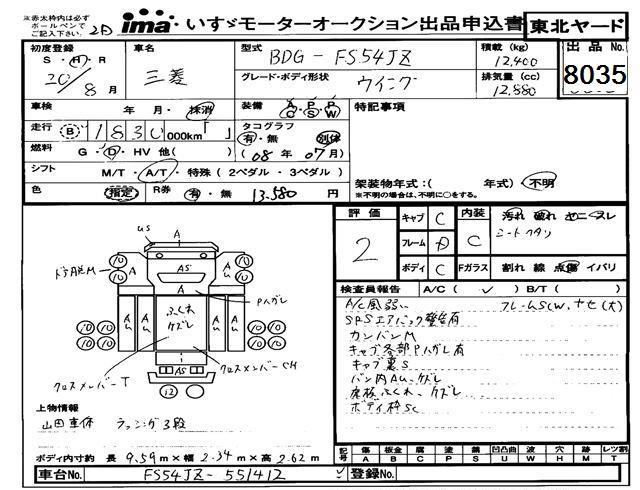 ※赤太枠内は必ず
ボールペンで
ご記入下さい。
ima いすゞモーターオークション出品申込書 東北ヤード
初度登録
S・H・R
20/8月
車名
三菱
型式
BDG-FS54JZ
グレード・ボディ形状
ウイング
積載 (kg)
12,400
排気量 (cc)
12,880
出品No
8035
車検 年 月・抹消
装備 A/C P/S P/W
特記事項
走行 1830 000km
タコグラフ
有・無 別体
(08年07月)
燃料 G・D・HV 他( )
シフト M/T・A/T・特殊(2ペダル・3ペダル)
架装物年式:( 年式)・不明
※不明の場合は、不明に○をする。
色 指定 R券 有・無 13,580 円
評価
2
キャブ C
フレーム D
ボディ C
内装 C
汚れ 破れ ヤニ スレ
シートクタリ
Fガラス 割れ 線 点傷 イバリ
検査員報告 A/C( ✓ ) B/T( )
A/C風弱い
フレームSCW.ナセ(大)
SPSエアバック警告有
カンバンM
キャブ各部Pハガレ有
キャブ裏S
バン内AU.ケズレ
床板ふくれ、ケズレ
ボディ枠SC
US
A
AS
A
A
A
Pハガレ
ドア内脱M
ふくれ
ケズレ
クロスメンバーT
クロスメンバーCH
AS
上物情報
山田車体 ラッシング3段
ボディ内寸約 長 9.59m×幅 2.34m×高 2.62m
記号 傷A 板金B 腐C 塗P 舗S 凹凸曲U 波W 穴H 跡M レツ割T
車台No. FS54JZ-551412
登録No.